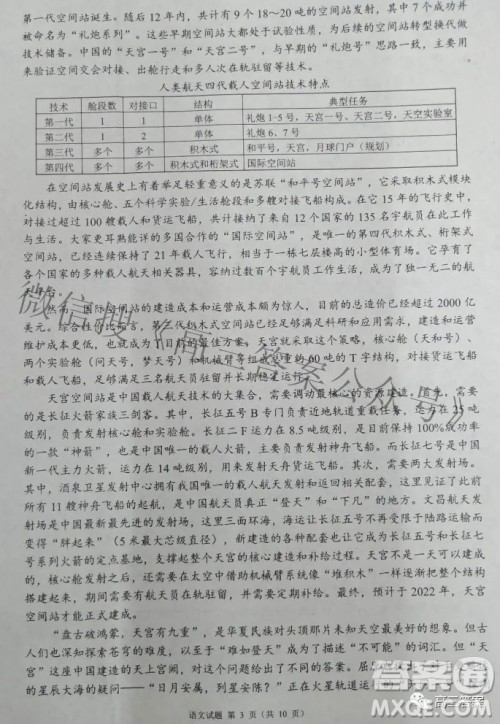 第一代空间站诞生。随后 12 年内，共计有 9 个 18～20 吨的空间站发射，其中 7 个成功并
被命名为“礼炮系列”。这些早期空间站大都处于试验性质，为后续的空间站转型换代做
技术储备。中国的“天宫一号”和“天宫二号”，与早期的“礼炮号”思路一致，主要用
来验证空间交会对接、出舱行走和多人次在轨驻留等技术。
人类航天四代载人空间站技术特点
技术 舱段数 对接口 结构 典型任务
第一代 1 1 单体 礼炮 1-5 号，天宫一号、天宫二号，天空实验室
第二代 1 2 单体 礼炮 6、7 号
第三代 多个 多个 积木式 和平号，天宫，月球门户（规划）
第四代 多个 多个 积木式和桁架式 国际空间站
在空间站发展史上有着举足轻重意义的是苏联“和平号空间站”，它采取积木式模块
化结构，由核心舱、五个科学实验/生活舱段和多艘对接飞船构成。在它 15 年的飞行史中，
对接过超过 100 艘载人和货运飞船，共计接纳了来自 12 个国家的 135 名宇航员在此工作
与生活。大家更耳熟能详的多国合作的“国际空间站”，是唯一的第四代积木式、桁架式
空间站，已经连续保持了 21 年载人飞行，相当于一栋七层楼高的小型体育场。它孕育了
各个国家的多种载人航天相关器具，容纳过数百个宇航员工作生活，成为了独一无二的航
然而，国际空间站的建造成本和运营成本颇为惊人，目前的总造价已经超过 2000 亿
美元。综合性价比而言，第三代积木式空间站已经足够满足科研和应用需求，建造和运营
维护成本更低，也就成为了目前的最佳方案。天宫，就是采取这个策略，核心舱（天和号）、
两个实验舱（问天号，梦天号）和机械臂等组成总重约 60 吨的 T 字结构，对接货运飞船
和载人飞船，能够满足三名航天员驻留并长期稳定运行。
天宫空间站是中国载人航天技术的大集合，需要调动最核心的资源建造。首先，需要
的是长征火箭家族三剑客。其中，长征五号 B 专门负责近地轨道重载任务，运力在 25 吨
级别，负责发射核心舱和实验舱。长征二 F 运力在 8.5 吨级别，是目前保持 100%成功率
的一款“神箭”，也是中国唯一的载人火箭，主要负责发射神舟飞船。而长征七号是中国
新一代主力火箭，运力在 14 吨级别，用来发射天舟货运飞船。其次，需要两大发射场。
其中，酒泉卫星发射中心拥有我国唯一的载人航天发射和返回相关配套，这里见证了此前
所有 11 艘神舟飞船的起航，是中国航天员真正“登天”和“下凡”的地方。文昌航天发
射场是中国最新最先进的发射场，这里三面环海，海运让长征五号不再受限于陆路运输而
变得“胖起来”（5 米最大芯级直径），新建造的各种配套也让它成为长征五号和长征七
号系列火箭的定点基地，支撑起整个天宫的核心建造和补给过程。天宫不是一天可以建成
的，核心舱发射之后，还需要在太空中借助机械臂系统像“堆积木”一样逐渐把整个结构
搭建起来，期间需要有航天员在轨驻留，并需要定期补给。最终，预计于 2022 年，天宫
空间站才能正式建成。
“盘古破鸿蒙，天宫有九重”，是华夏民族对头顶那片未知天空最美好的想象。但古
人们也深知探索苍穹的难度，以至于“难如登天”成为了描述“不可能”的词汇。但“天
宫”这座中国建造的天上宫阙，对这个问题给出了不同的答案。
的星辰大海的疑问——“日月安属，列星安陈？”
语文试题 第 3 页（共 10 页）